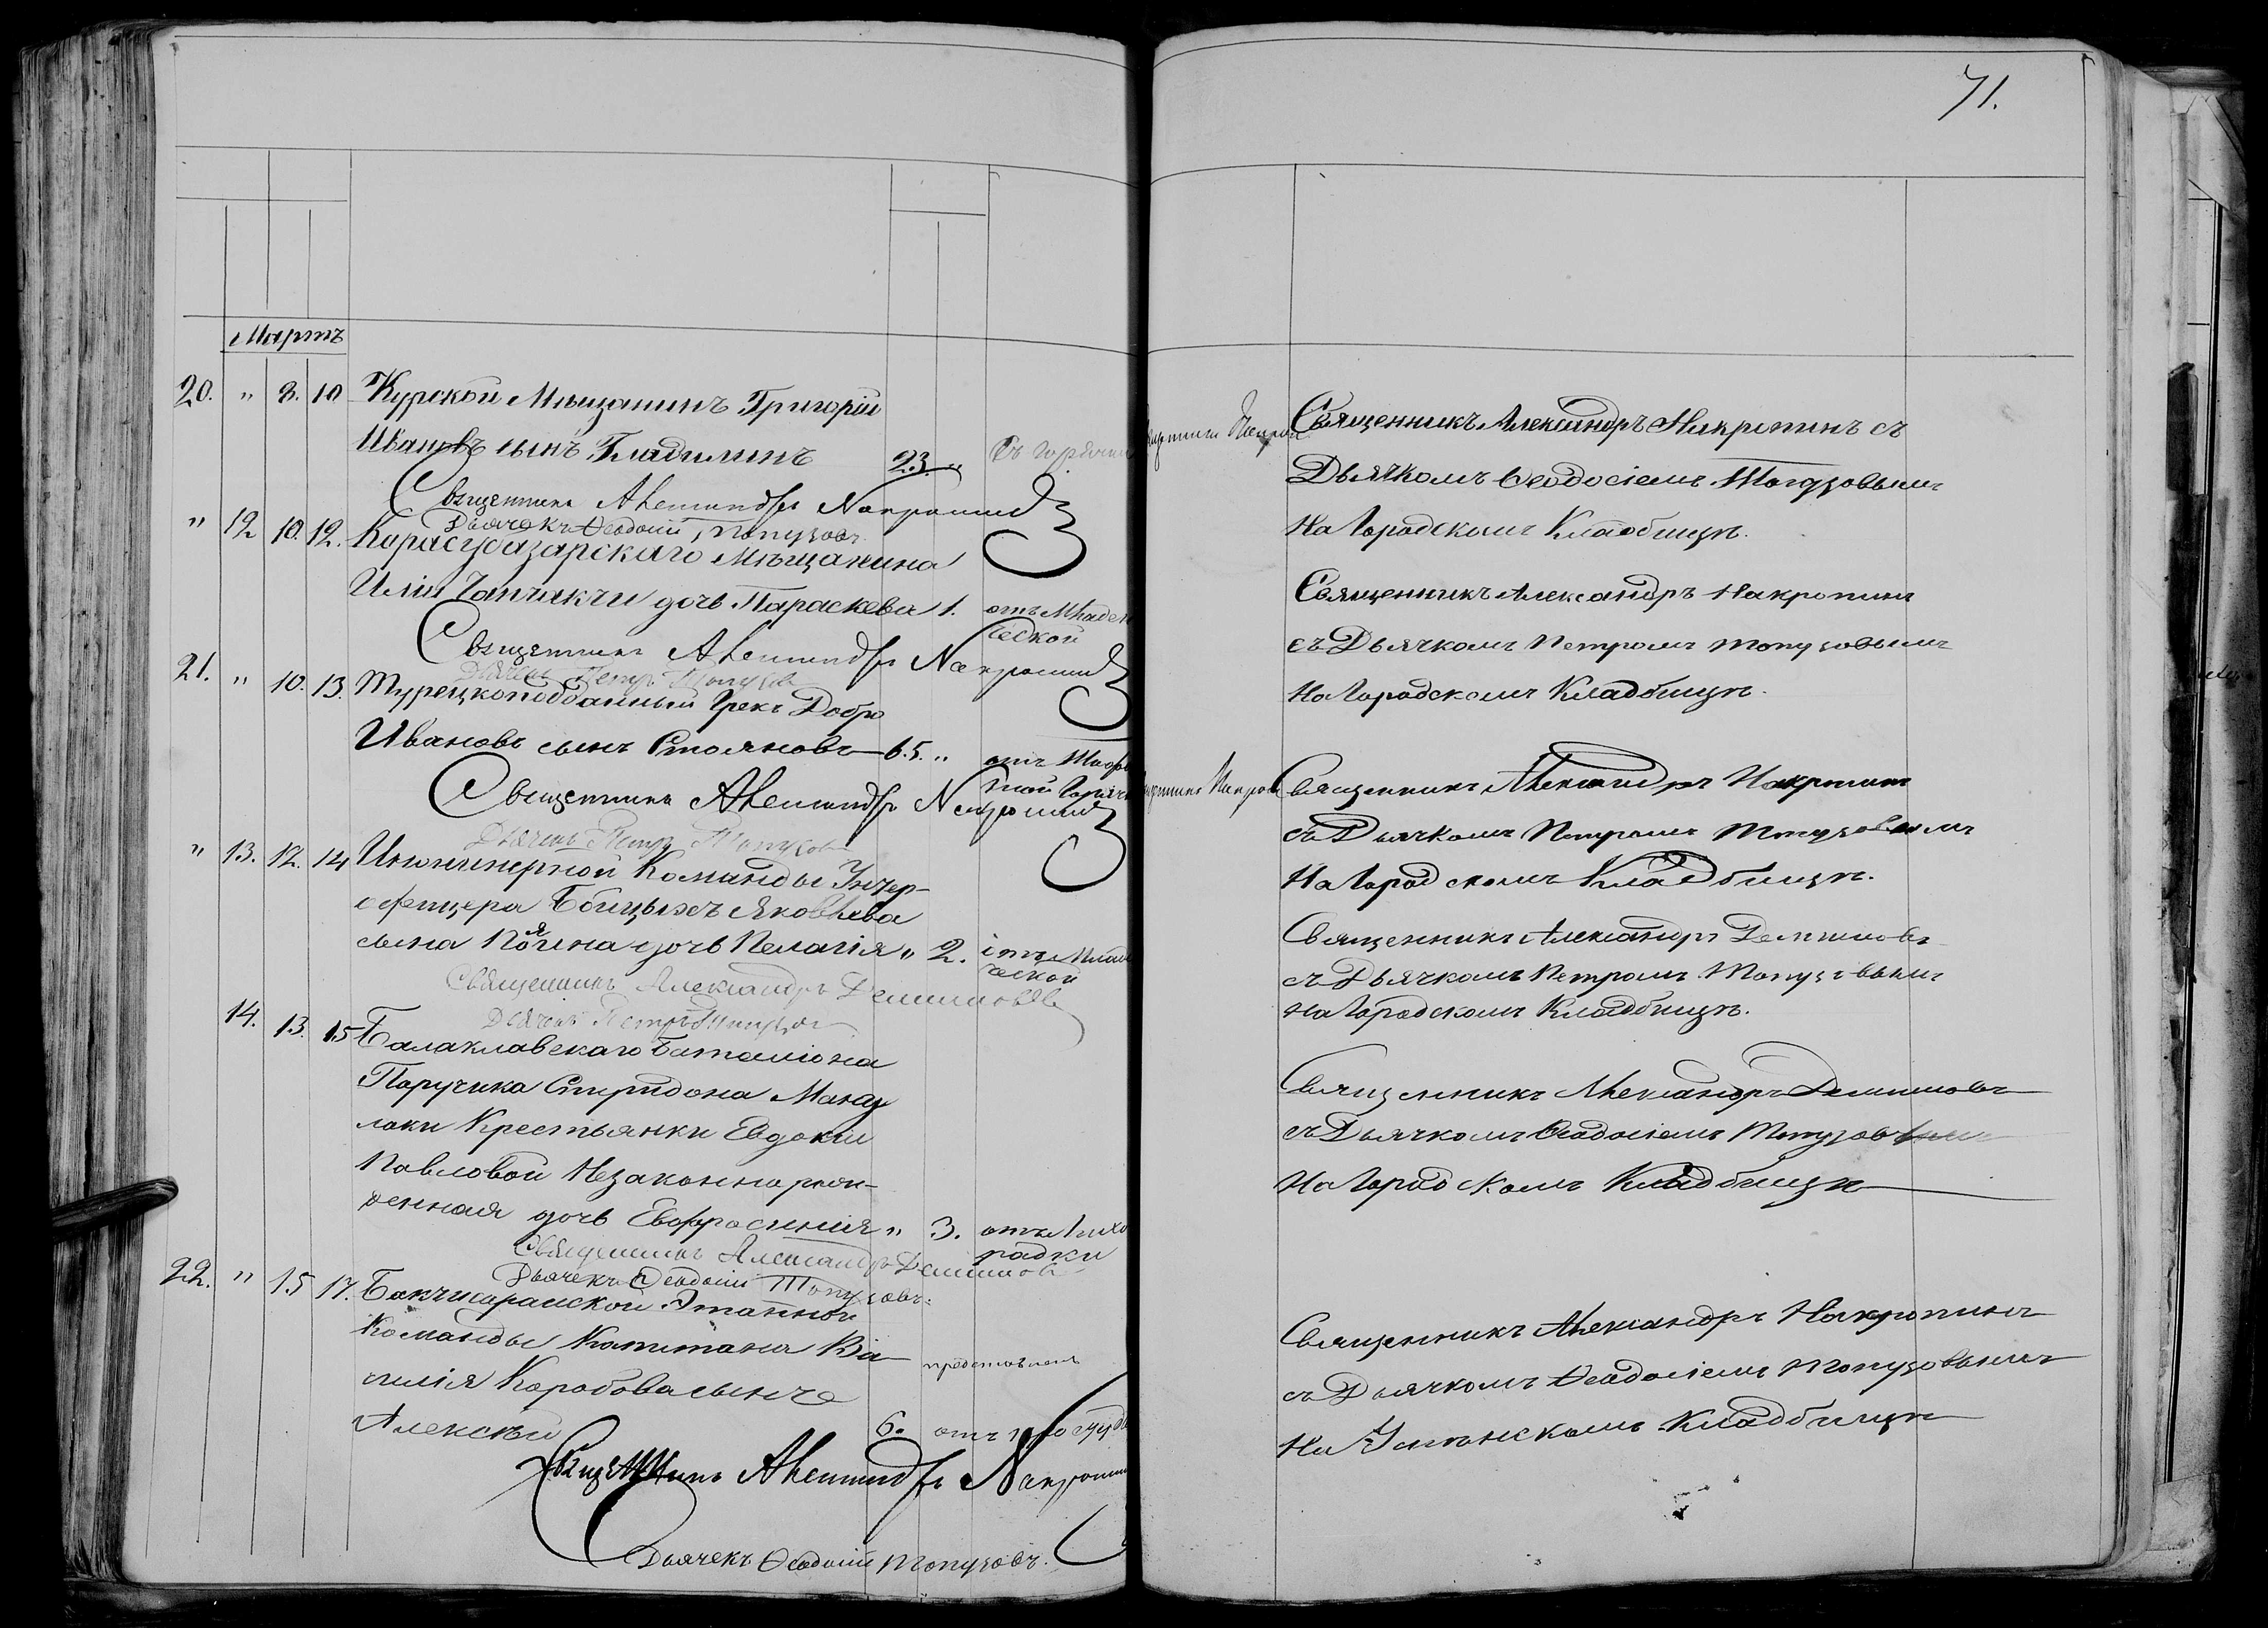 71.
Мартъ
20. " 8. 10 Курской Мѣщанинъ Григорій
Ивановъ сынъ Гладилинъ 23. "
Священникъ Александръ Накропинъ
Дьячекъ Ѳеодосій Топузовъ
" 12 10. 12. Карасубазарскаго Мѣщанина
Иліи дочь Параскева 1. отъ Младен
ческой
Священникъ Александръ Накропинъ
Дьячекъ Петръ Топузовъ
21. " 10. 13. Турецкоподданный Грекъ Добро
Ивановъ сынъ Стояновъ 65. " отъ
Священникъ Александръ Накропинъ
Дьячекъ Петръ Топузовъ
" 13. 12. 14 Инжинерной Команды Унтер-
офицера Яковлева
сына дочь Пелагія " 2. отъ Млад
ческой
Священникъ Александръ Демяновъ
Дьячекъ Петръ Топузовъ
14. 13. 15 Балаклавскаго Баталіона
Поручика Спиридона
Крестьянки Евдокіи
Павловой Незаконнорож-
денная дочь Евфросинія " 3. отъ Лихо
радки
Священникъ Александръ Демяновъ
Дьячекъ Ѳеодосій Топузовъ
22. " 15 17. Бакчисарайской Этапной
Команды Капитана Ва-
силія Коробова сынъ
Алексѣй 6. отъ
Священникъ Александръ Накропинъ
Дьячекъ Ѳеодосій Топузовъ.
Священникъ Александръ Накропинъ съ
Дьячкомъ Ѳеодосіемъ Топузовымъ
На Городскомъ Кладбищѣ.
Священникъ Александръ Накропинъ
съ Дьячкомъ Петромъ Топузовымъ
На Городскомъ Кладбищѣ.
Священникъ Александръ Накропинъ
съ Дьячкомъ Петромъ Топузовымъ
На Городскомъ Кладбищѣ.
Священникъ Александръ Демяновъ
съ Дьячкомъ Петромъ Топузовымъ
На Городскомъ Кладбищѣ.
Священникъ Александръ Демяновъ
съ Дьячкомъ Ѳеодосіемъ Топузовымъ
На Городскомъ Кладбищѣ
Священникъ Александръ Накропинъ
съ Дьячкомъ Ѳеодосіемъ Топузовымъ
На Успѣнскомъ Кладбищѣ